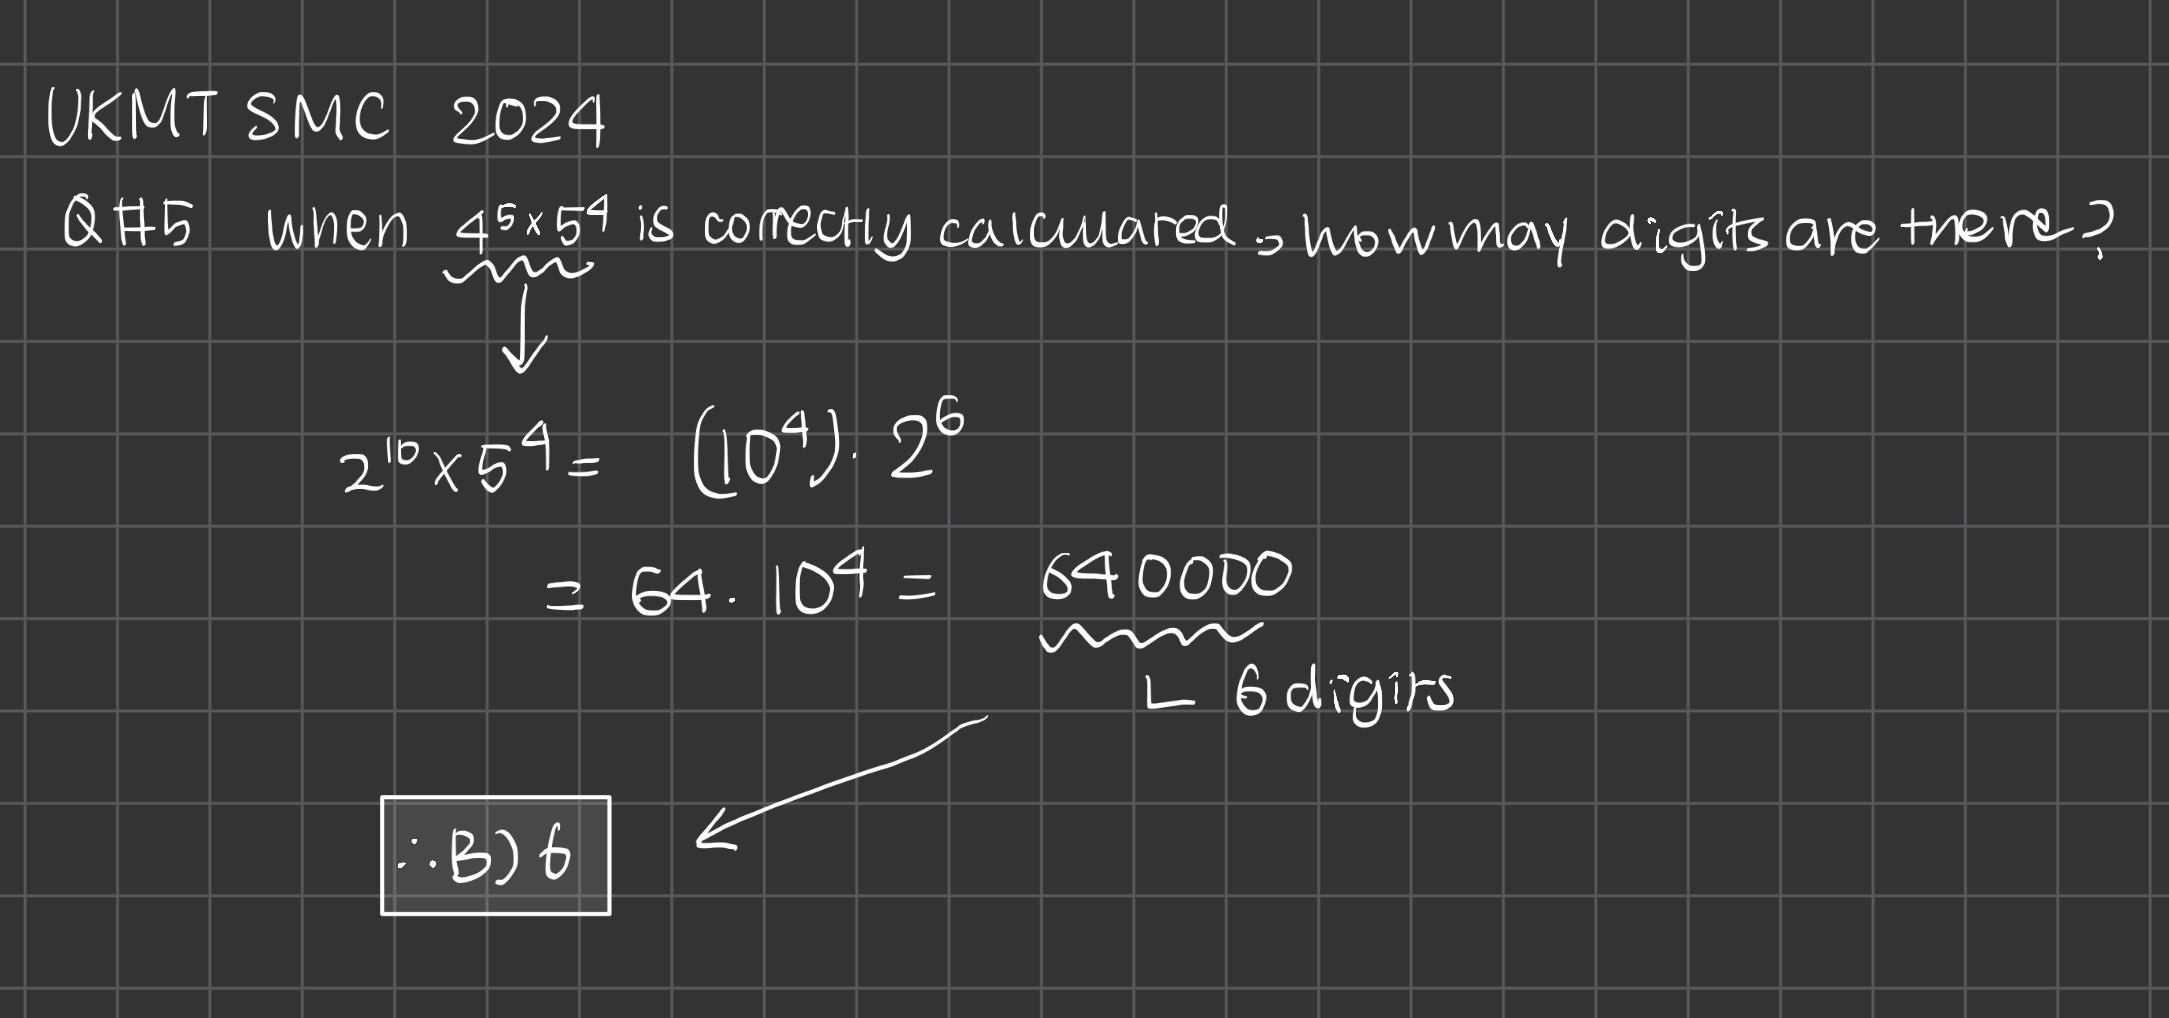 UKMT SMC 2024
Q#5 when 4⁵×5⁴ is correctly calculared, how may digits are there?
2¹⁰×5⁴ = (10⁴)·2⁶
= 64·10⁴ = 640000
6 digits
∴B) 6